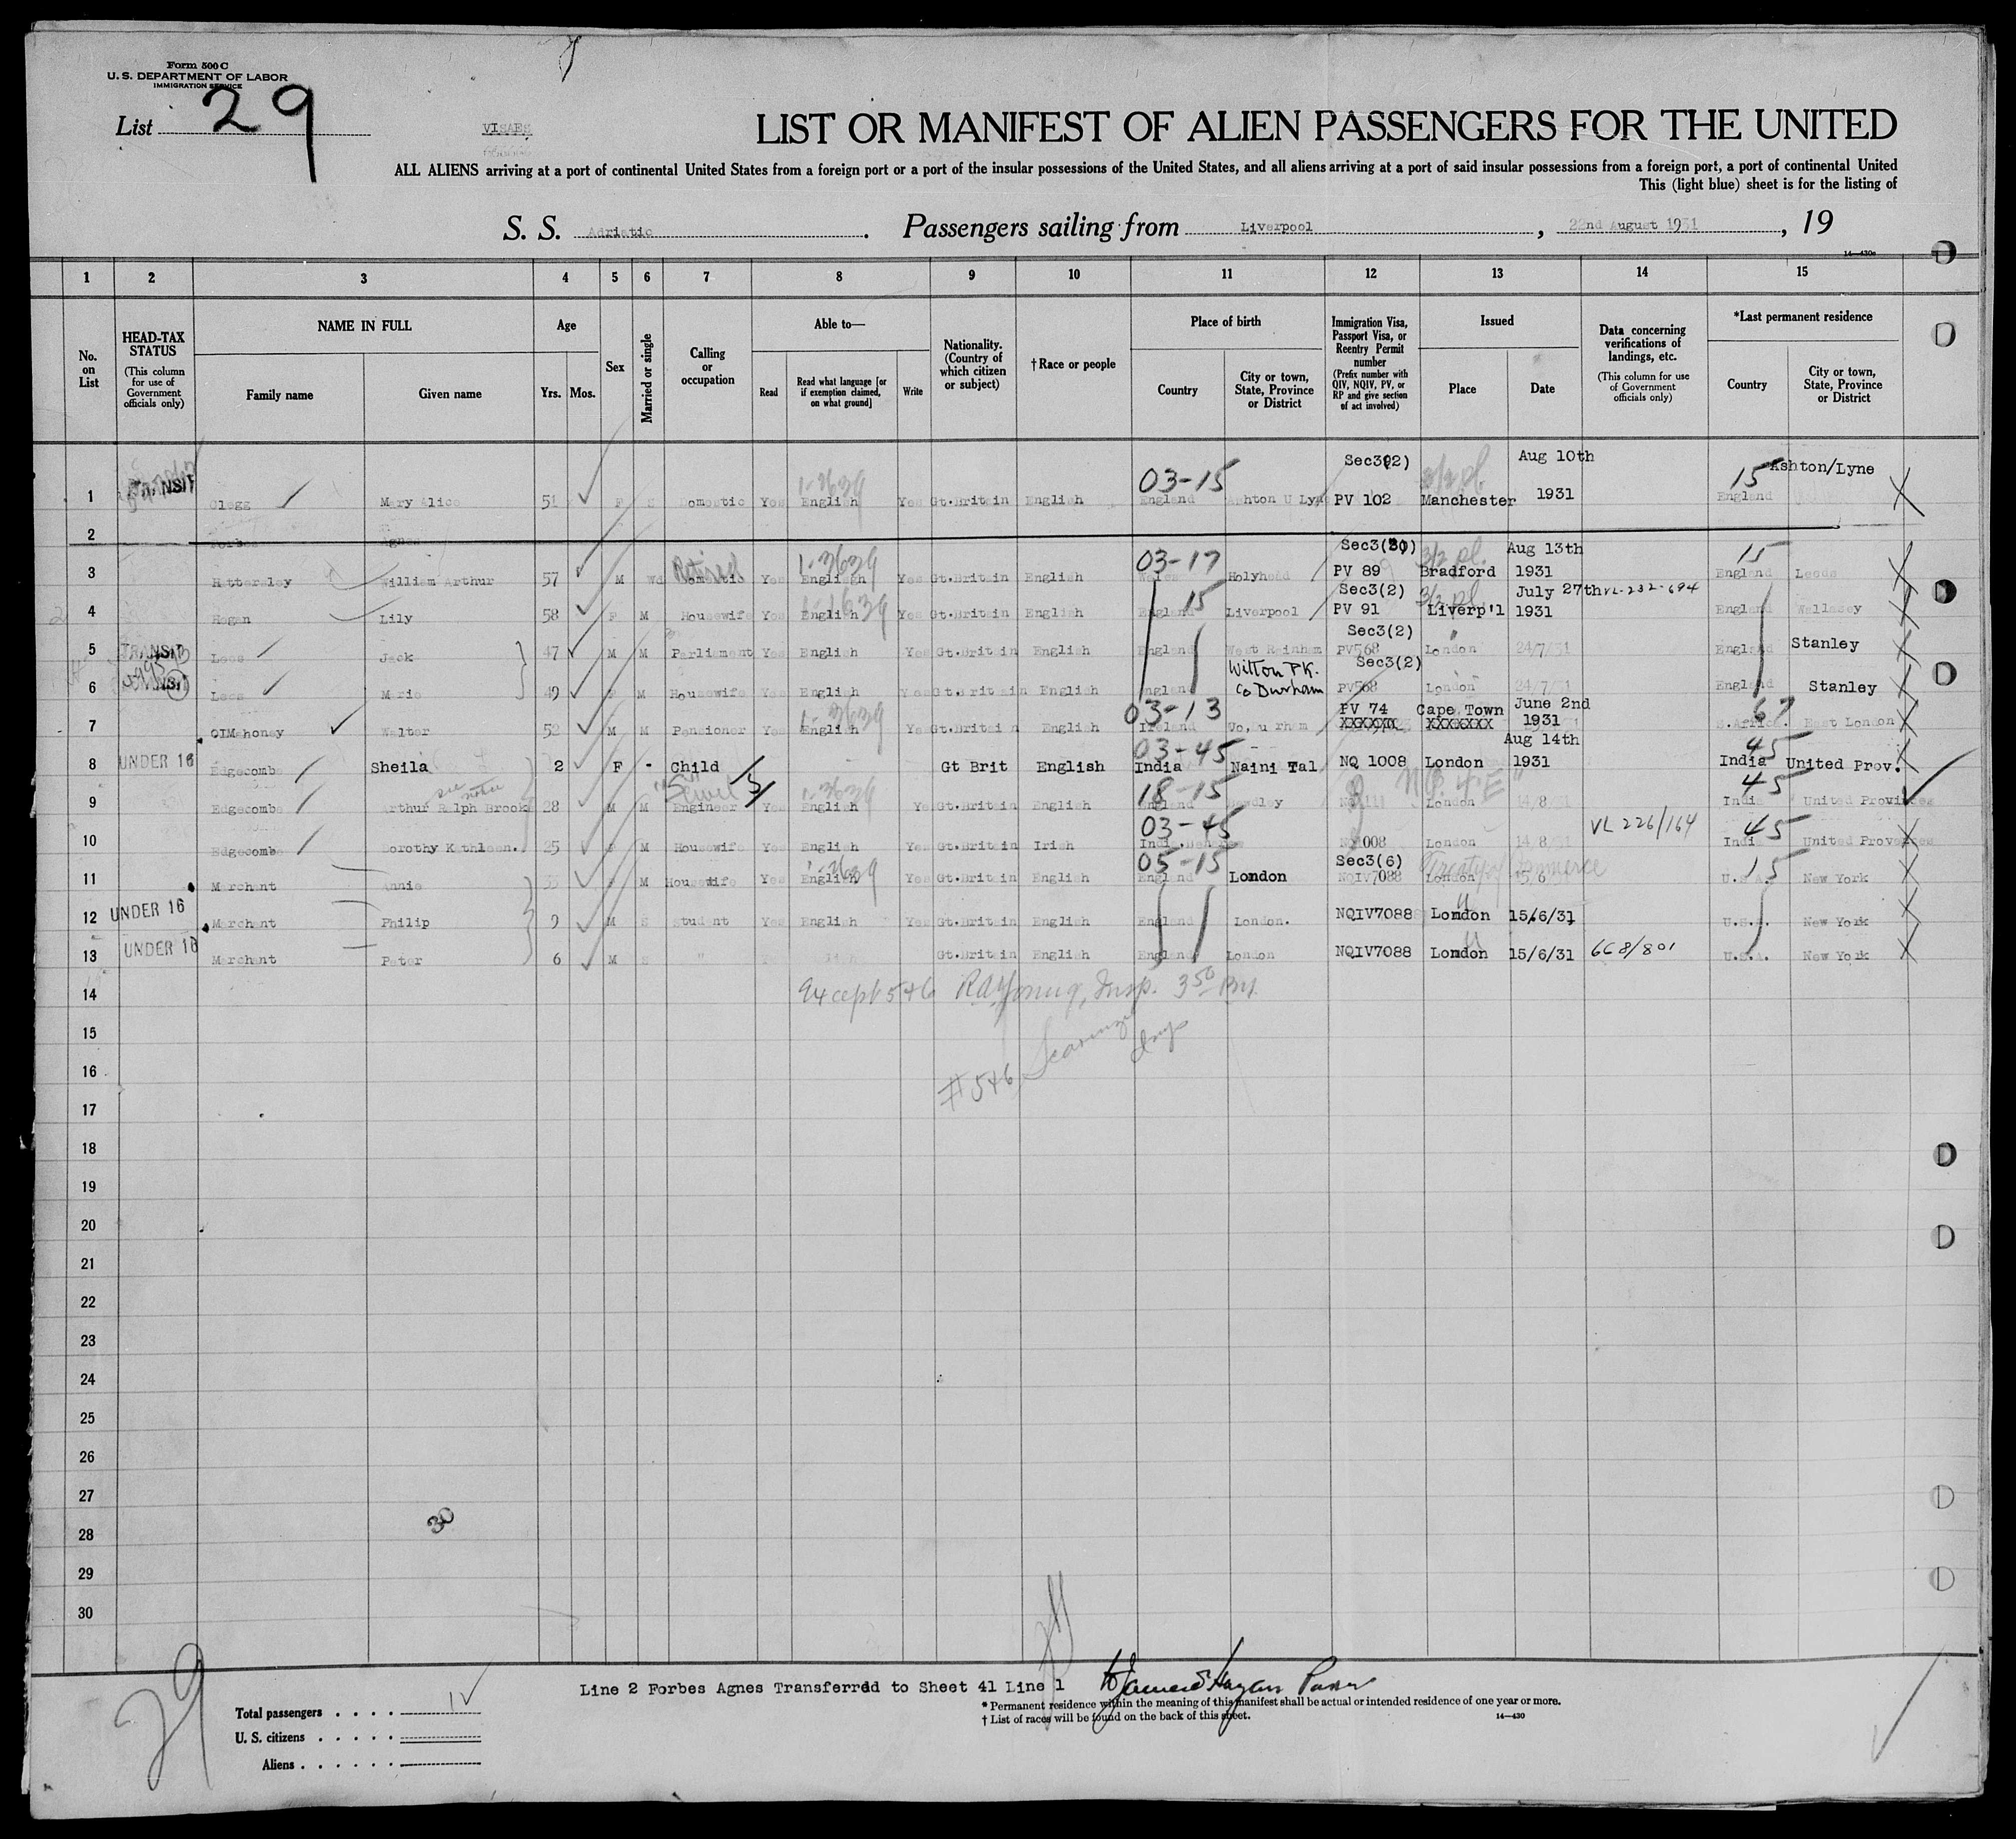 Form 500 C
U. S. DEPARTMENT OF LABOR
IMMIGRATION SERVICE
List 29
VISAES
LIST OR MANIFEST OF ALIEN PASSENGERS FOR THE UNITED
ALL ALIENS arriving at a port of continental United States from a foreign port or a port of the insular possessions of the United States, and all aliens arriving at a port of said insular possessions from a foreign port, a port of continental United
This (light blue) sheet is for the listing of
S. S. Adriatic. Passengers sailing from Liverpool, 22nd August 1931, 19
14—430a
1 2 3 4 5 6 7 8 9 10 11 12 13 14 15
No. on List
HEAD-TAX STATUS
(This column for use of Government officials only)
NAME IN FULL
Family name Given name
Age
Yrs. Mos.
Sex
Married or single
Calling or occupation
Able to—
Read
Read what language [or if exemption claimed, on what ground]
Write
Nationality. (Country of which citizen or subject)
† Race or people
Place of birth
Country
City or town, State, Province or District
Immigration Visa, Passport Visa, or Reentry Permit number
(Prefix number with QIV, NQIV, PV, or RP and give section of act involved)
Issued
Place Date
Data concerning verifications of landings, etc.
(This column for use of Government officials only)
*Last permanent residence
Country
City or town, State, Province or District
03-15 Sec3(2) Aug 10th 15 Ashton/Lyne
1 TRANSIT Clegg Mary Alice 51 F S Domestic Yes English Yes Gt.Britain English England Ashton U Lyn PV 102 Manchester 1931 England
2 Forbes Agnes
Retired 1-3639 03-17 Sec3( ) 3/2 pl. Aug 13th 15
3 Hattersley William Arthur 57 M Wd Domestic Yes English Yes Gt.Britain English Wales Holyhead PV 89 Bradford 1931 England Leeds
15 Sec3(2) 3/2 pl. July 27th VL-232-694
4 Hogan Lily 58 F M Housewife Yes English Yes Gt.Britain English England Liverpool PV 91 Liverp'l 1931 England Wallasey
Sec3(2)
5 TRANSIT Lees Jack 47 M M Parliament Yes English Yes Gt.Britain English England West Rainham PV568 London 24/7/31 England Stanley
Witton PK. Sec3(2)
6 Lees Marie 49 F M Housewife Yes English Yes Gt.Britain English England Co Durham PV568 London 24/7/31 England Stanley
1-3639 03-13 PV 74 Cape Town June 2nd 67
7 O'Mahoney Walter 52 M M Pensioner Yes English Yes Gt.Britain English Ireland Co,Durham XXXXXXX XXXXXXX 1931 S.Africa. East London
03-45 Aug 14th 45
8 UNDER 16 Edgecombe Sheila 2 F - Child - Gt Brit English India Naini Tal NQ 1008 London 1931 India United Prov.
see notes Civil 18-15 45
9 Edgecombe Arthur Ralph Brook 28 M M Engineer Yes English Yes Gt.Britain English England London 14/8/31 India United Provinces
03-45 VL 226/164 45
10 Edgecombe Dorothy Kathleen. 25 F M Housewife Yes English Yes Gt.Britain Irish India NQ1008 London 14/8/31 India United Provinces
1-3639 05-15 Sec3(6) Treaty of Commerce 15
11 Merchant Annie 33 F M Housewife Yes English Yes Gt.Britain English England London NQIV7088 London 15/6 U.S.A. New York
12 UNDER 16 Merchant Philip 9 M S Student Yes English Yes Gt.Britain English England London. NQIV7088 London 15/6/31 U.S.A. New York
13 UNDER 16 Merchant Peter 6 M S " Gt.Britain English England London NQIV7088 London 15/6/31 668/801 U.S.A. New York
14 Except 5+6 RA Young, Insp. 3
15
16
# 5+6
17
18
19
20
21
22
23
24
25
26
27
28 30
29
30
29
Line 2 Forbes Agnes Transferred to Sheet 41 Line 1
Total passengers
U. S. citizens
Aliens
* Permanent residence within the meaning of this manifest shall be actual or intended residence of one year or more.
† List of races will be found on the back of this sheet.
14—430